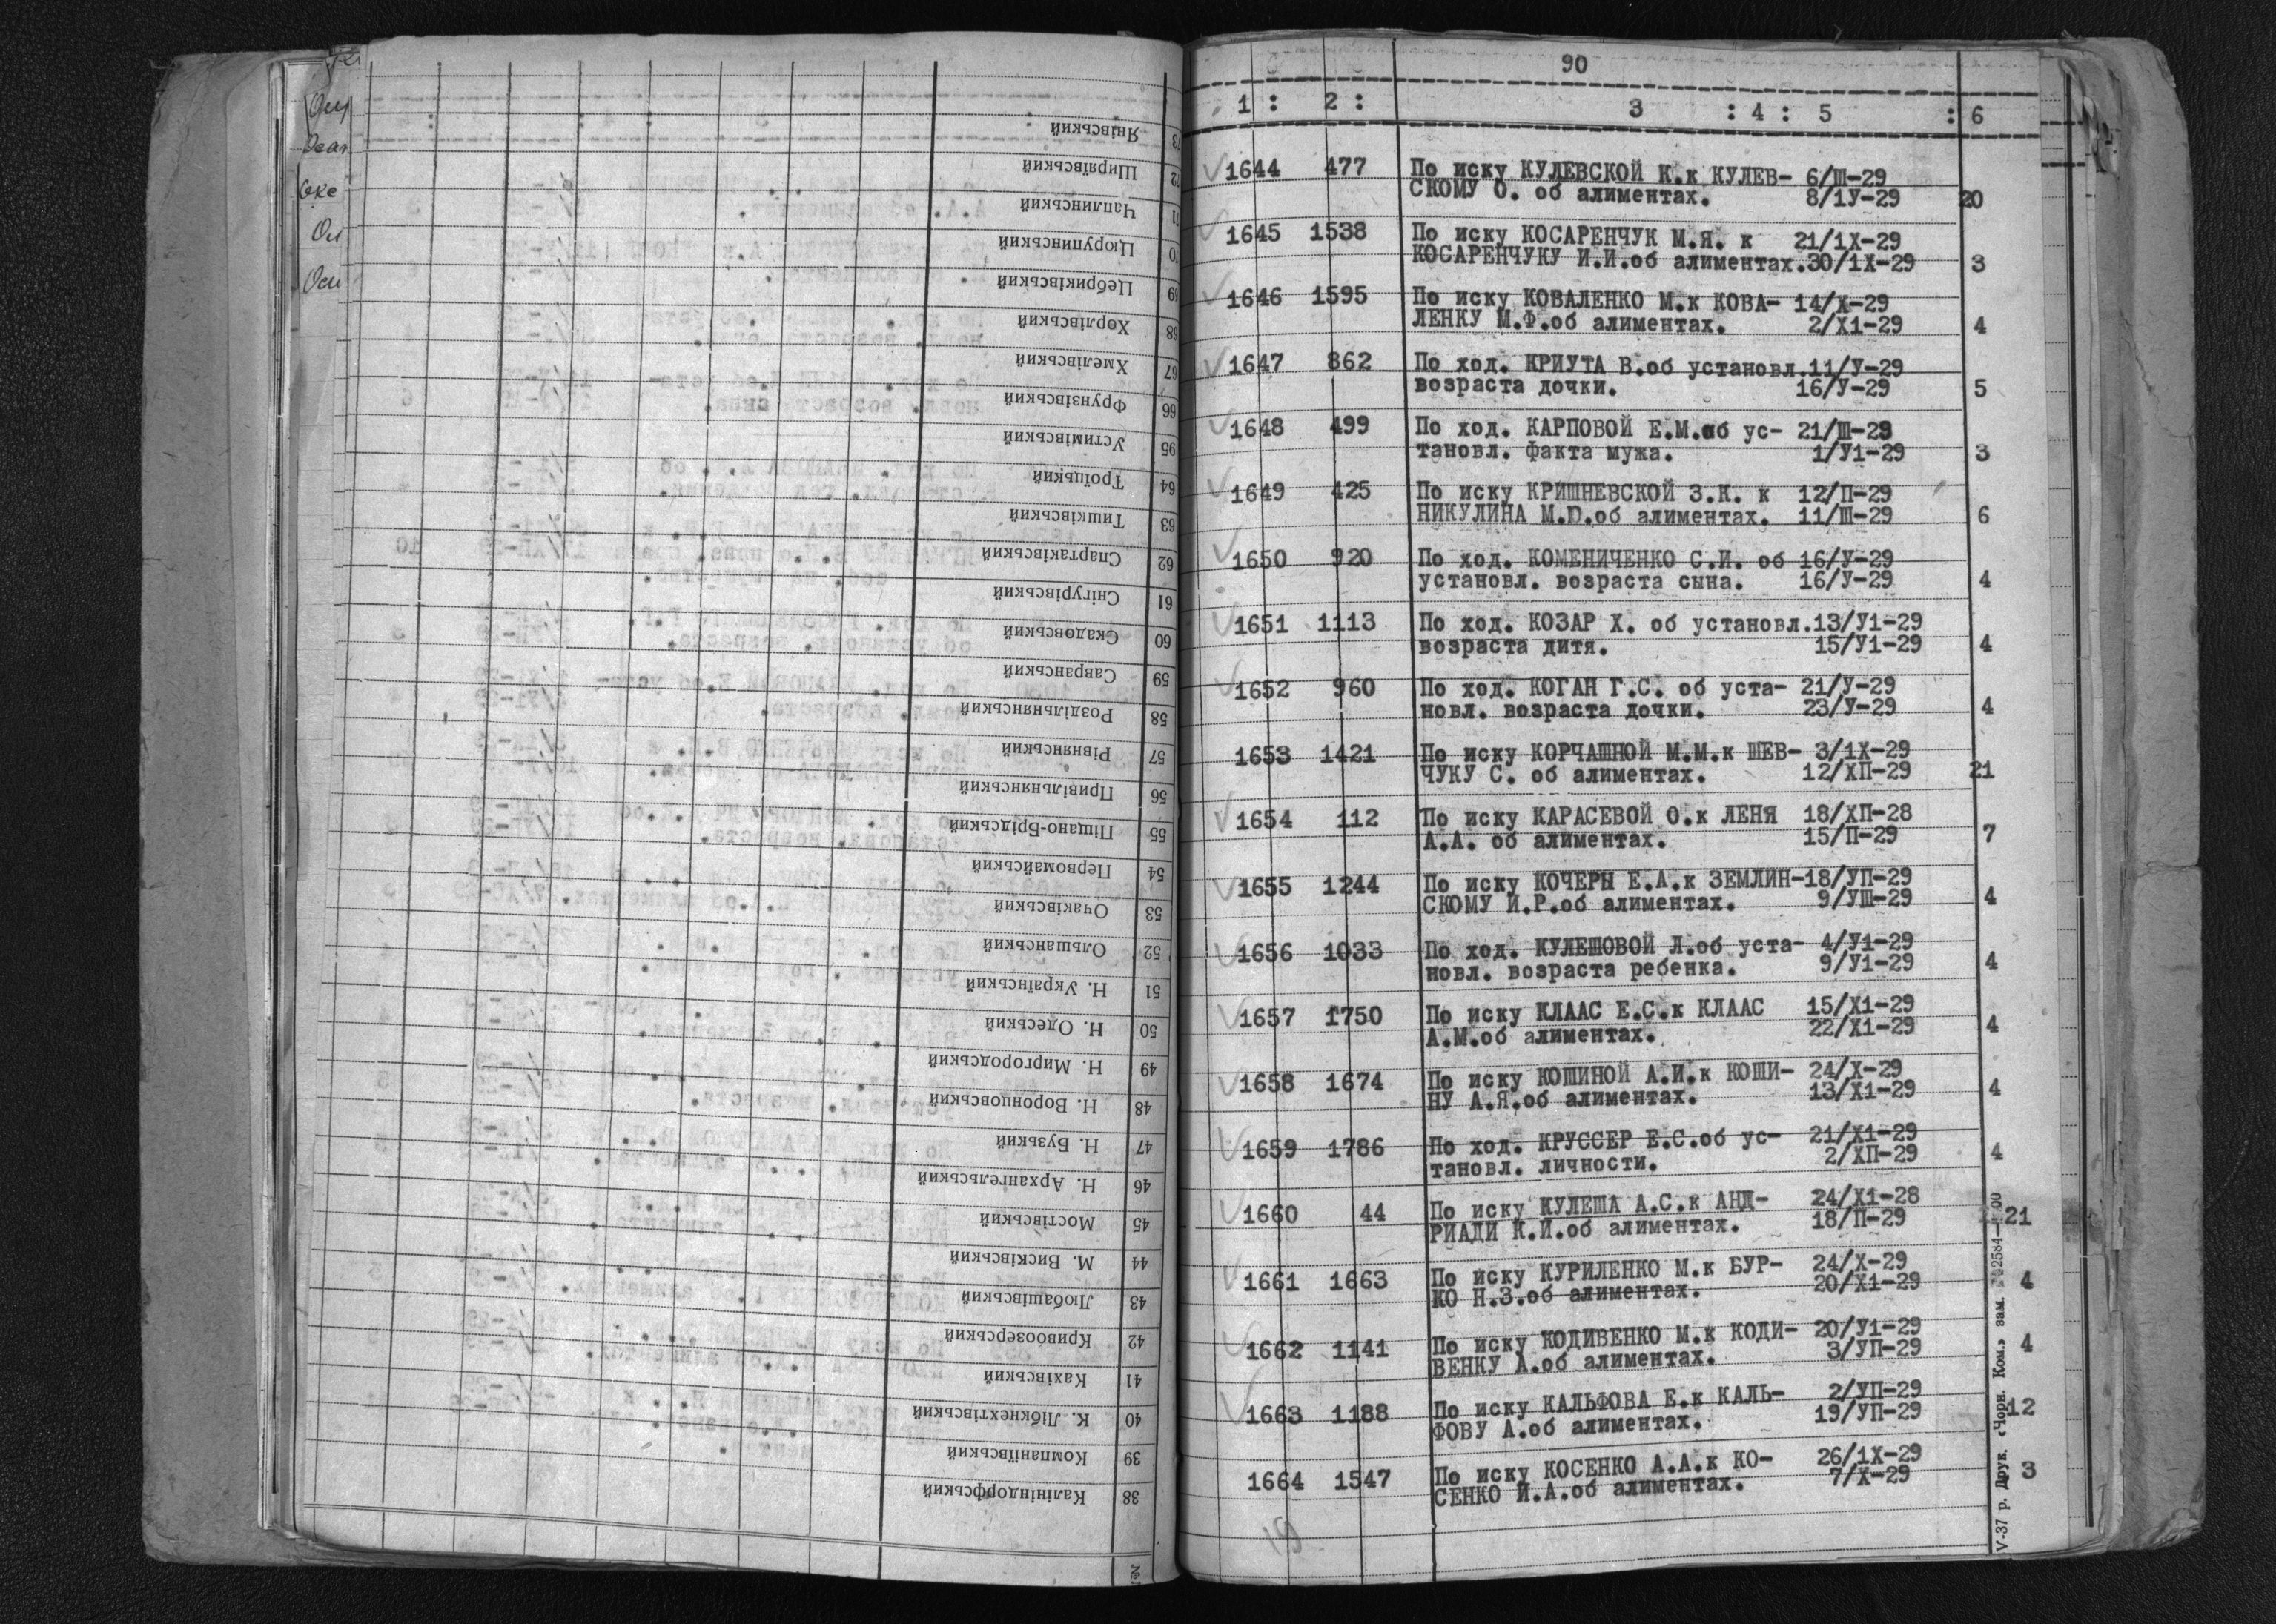 90
1 : 2 : 3 : 4 : 5 : 6
1644 477 По иску КУЛЕВСКОЙ К.к КУЛЕВ- 6/Ш-29
СКОМУ О. об алиментах. 8/1У-29 20
1645 1538 По иску КОСАРЕНЧУК М.Я. к 21/1Х-29
КОСАРЕНЧУКУ И.И.об алиментах.30/1Х-29 3
1646 1595 По иску КОВАЛЕНКО М.к КОВА- 14/Х-29
ЛЕНКУ М.Ф.об алиментах. 2/Х1-29 4
1647 862 По ход. КРИУТА В.об установл.11/У-29
возраста дочки. 16/У-29 5
1648 499 По ход. КАРПОВОЙ Е.М.об ус- 21/Ш-29
тановл. факта мужа. 1/У1-29 3
1649 425 По иску КРИШНЕВСКОЙ З.К. к 12/П-29
НИКУЛИНА М.D.об алиментах. 11/Ш-29 6
1650 920 По ход. КОМЕНИЧЕНКО С.И. об 16/У-29
установл. возраста сына. 16/У-29 4
1651 1113 По ход. КОЗАР Х. об установл.13/У1-29
возраста дитя. 15/У1-29 4
1652 960 По ход. КОГАН Г.С. об уста- 21/У-29
новл. возраста дочки. 23/У-29 4
1653 1421 По иску КОРЧАШНОЙ М.М.к ШЕВ- 3/1Х-29
ЧУКУ С. об алиментах. 12/ХП-29 21
1654 112 По иску КАРАСЕВОЙ О.к ЛЕНЯ 18/ХП-28
А.А. об алиментах. 15/П-29 7
1655 1244 По иску КОЧЕРЫ Е.А.к ЗЕМЛИН-18/УП-29
СКОМУ И.Р.об алиментах. 9/УШ-29 4
1656 1033 По ход. КУЛЕШОВОЙ Л.об уста- 4/У1-29
новл. возраста ребенка. 9/У1-29 4
1657 1750 По иску КЛААС Е.С.к КЛААС 15/Х1-29
А.М.об алиментах. 22/Х1-29 4
1658 1674 По иску КОШИНОЙ А.И.к КОШИ- 24/Х-29
НУ А.Я.об алиментах. 13/Х1-29 4
1659 1786 По ход. КРУССЕР Е.С.об ус- 21/Х1-29
тановл. личности. 2/ХП-29 4
1660 44 По иску КУЛЕША А.С.к АНД- 24/Х1-28
РИАДИ К.И.об алиментах. 18/П-29 21
1661 1663 По иску КУРИЛЕНКО М.к БУР- 24/Х-29
КО Н.З.об алиментах. 20/Х1-29 4
1662 1141 По иску КОДИВЕНКО М.к КОДИ- 20/У1-29
ВЕНКУ А.об алиментах. 3/УП-29 4
1663 1188 По иску КАЛЬФОВА Е.к КАЛЬ- 2/УП-29
ФОВУ А.об алиментах. 19/УП-29 12
1664 1547 По иску КОСЕНКО А.А.к КО- 26/1Х-29
СЕНКО И.А.об алиментах. 7/Х-29 3
19
V-37 р. Друк. «Чорн. Ком.» зам. 2584
38 Калініндорфський
39 Компаніївський
40 К. Лібкнехтівський
41 Кахівський
42 Кривоозерський
43 Любашівський
44 М. Висківський
45 Мостівський
46 Н. Архангельський
47 Н. Бузький
48 Н. Воронцовський
49 Н. Миргородський
50 Н. Одеський
51 Н. Український
52 Ольшанський
53 Очаківський
54 Первомайський
55 Піщано-Брідський
56 Привільнянський
57 Рівнянський
58 Роздільнянський
59 Савранський
60 Скадовський
61 Снігурівський
62 Спартаківський
63 Тишківський
64 Троїцький
95 Устимівський
66 Фрунзівський
67 Хмелівський
68 Хорлівський
69 Цебриківський
70 Цюрупинський
71 Чаплинський
72 Ширяївський
73 Янівський